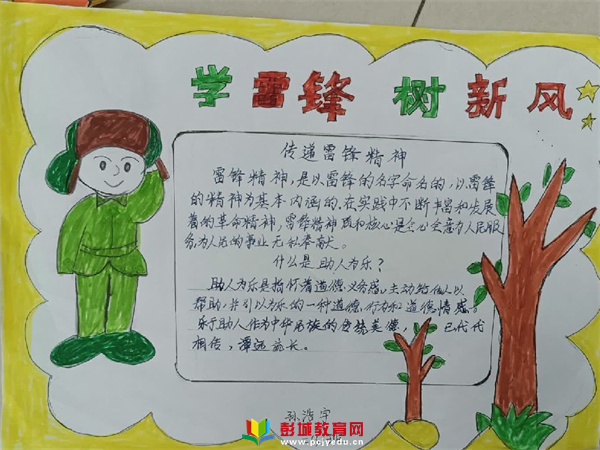 学雷锋 树新风
传递雷锋精神
雷锋精神,是以雷锋的名字命名的,以雷锋
的精神为基本内涵的,在实践中不断丰富和发展
着的革命精神,雷锋精神的核心是全心全意为人民服
务,为人民的事业无私奉献。
什么是助人为乐?
助人为乐是指怀着道德义务感,主动给他人以
帮助,并引以为乐的一种道德行为和道德情感。
乐于助人作为中华民族的传统美德, 已代代
相传,源远流长。
孙浩宇
彭城教育网
www.pcjyedu.cn